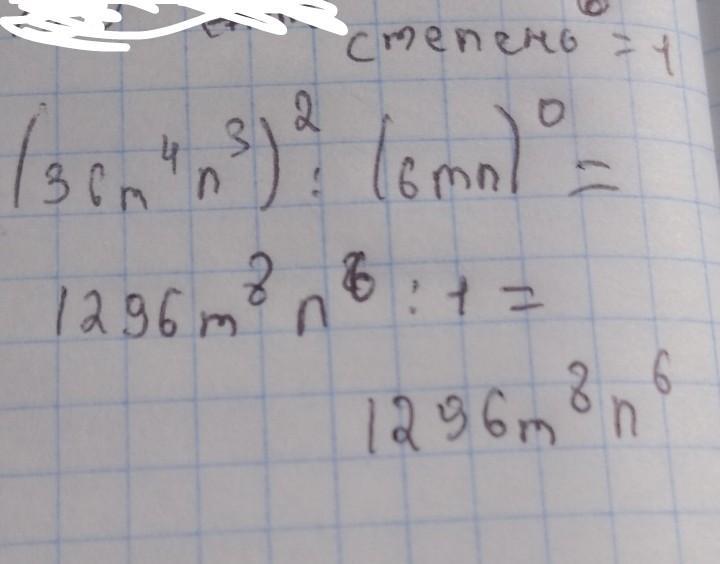 степень⁰ = 1
(36m⁴n³)² : (6mn)⁰ =
1296m⁸n⁶ : 1 =
1296m⁸n⁶